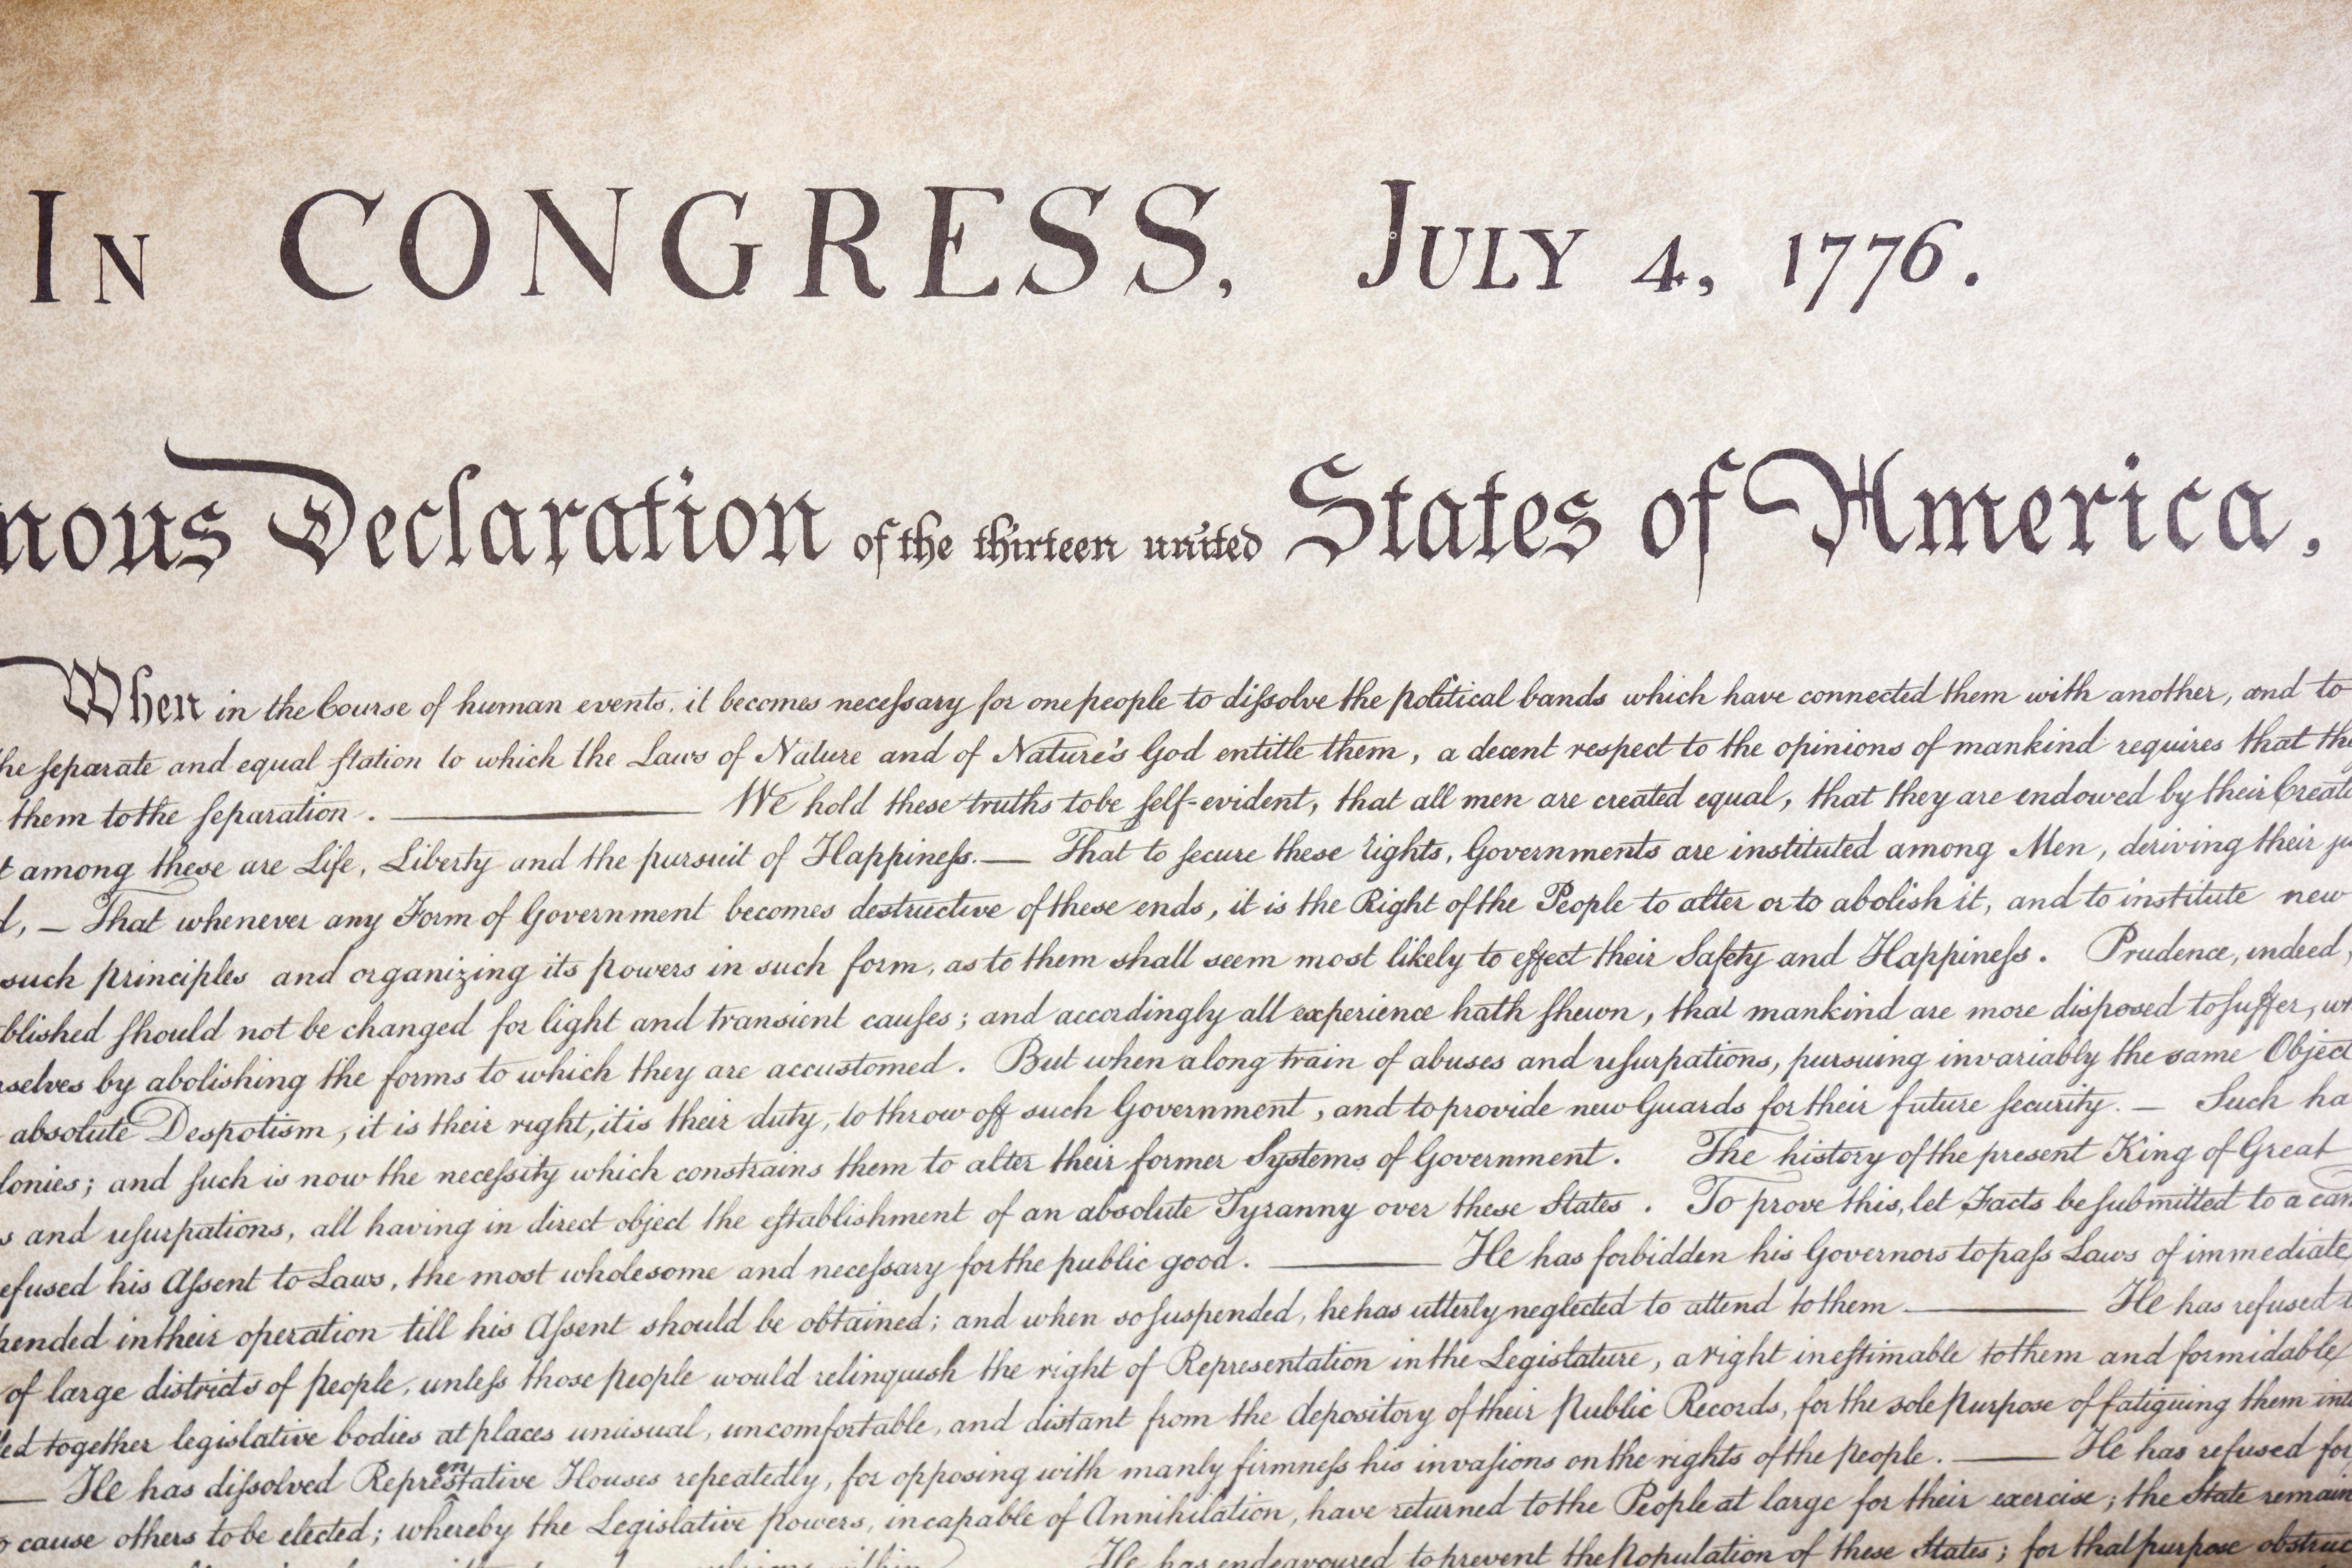 In CONGRESS, July 4, 1776.
nous Declaration of the thirteen united States of America,
When in the Course of human events, it becomes neceſsary for one people to diſsolve the political bands which have connected them with another, and to
he ſeparate and equal ſtation to which the Laws of Nature and of Nature's God entitle them, a decent respect to the opinions of mankind requires that the
them to the ſeparation. ——— We hold these truths to be ſelf-evident, that all men are created equal, that they are endowed by their Creato
t among these are Life, Liberty and the pursuit of Happineſs. — That to ſecure these rights, Governments are instituted among Men, deriving their ju
d, — That whenever any Form of Government becomes destructive of these ends, it is the Right of the People to alter or to abolish it, and to institute new
such principles and organizing its powers in such form, as to them shall seem most likely to effect their Safety and Happineſs. Prudence, indeed,
blished ſhould not be changed for light and transient cauſes; and accordingly all experience hath ſhewn, that mankind are more disposed to ſuffer, wh
rselves by abolishing the forms to which they are accustomed. But when a long train of abuses and uſurpations, pursuing invariably the same Object
absolute Despotism, it is their right, it is their duty, to throw off such Government, and to provide new Guards for their future ſecurity. — Such ha
lonies; and ſuch is now the neceſsity which constrains them to alter their former Systems of Government. The history of the present King of Great
s and uſurpations, all having in direct object the eſtablishment of an absolute Tyranny over these States. To prove this, let Facts be ſubmitted to a can
efused his Aſsent to Laws, the most wholesome and neceſsary for the public good. ——— He has forbidden his Governors to paſs Laws of immediate
pended in their operation till his Aſsent should be obtained; and when so ſuspended, he has utterly neglected to attend to them ——— He has refused t
of large districts of people, unleſs those people would relinquish the right of Representation in the Legislature, a right ineſtimable to them and formidable
led together legislative bodies at places unusual, uncomfortable, and distant from the depository of their Public Records, for the sole purpose of fatiguing them into
— He has diſsolved Representative Houses repeatedly, for opposing with manly firmneſs his invaſions on the rights of the people. —— He has refused for
o cause others to be elected; whereby the Legislative powers, incapable of Annihilation, have returned to the People at large for their exercise; the State remain
He has endeavoured to prevent the Population of these States; for that purpose obstruc